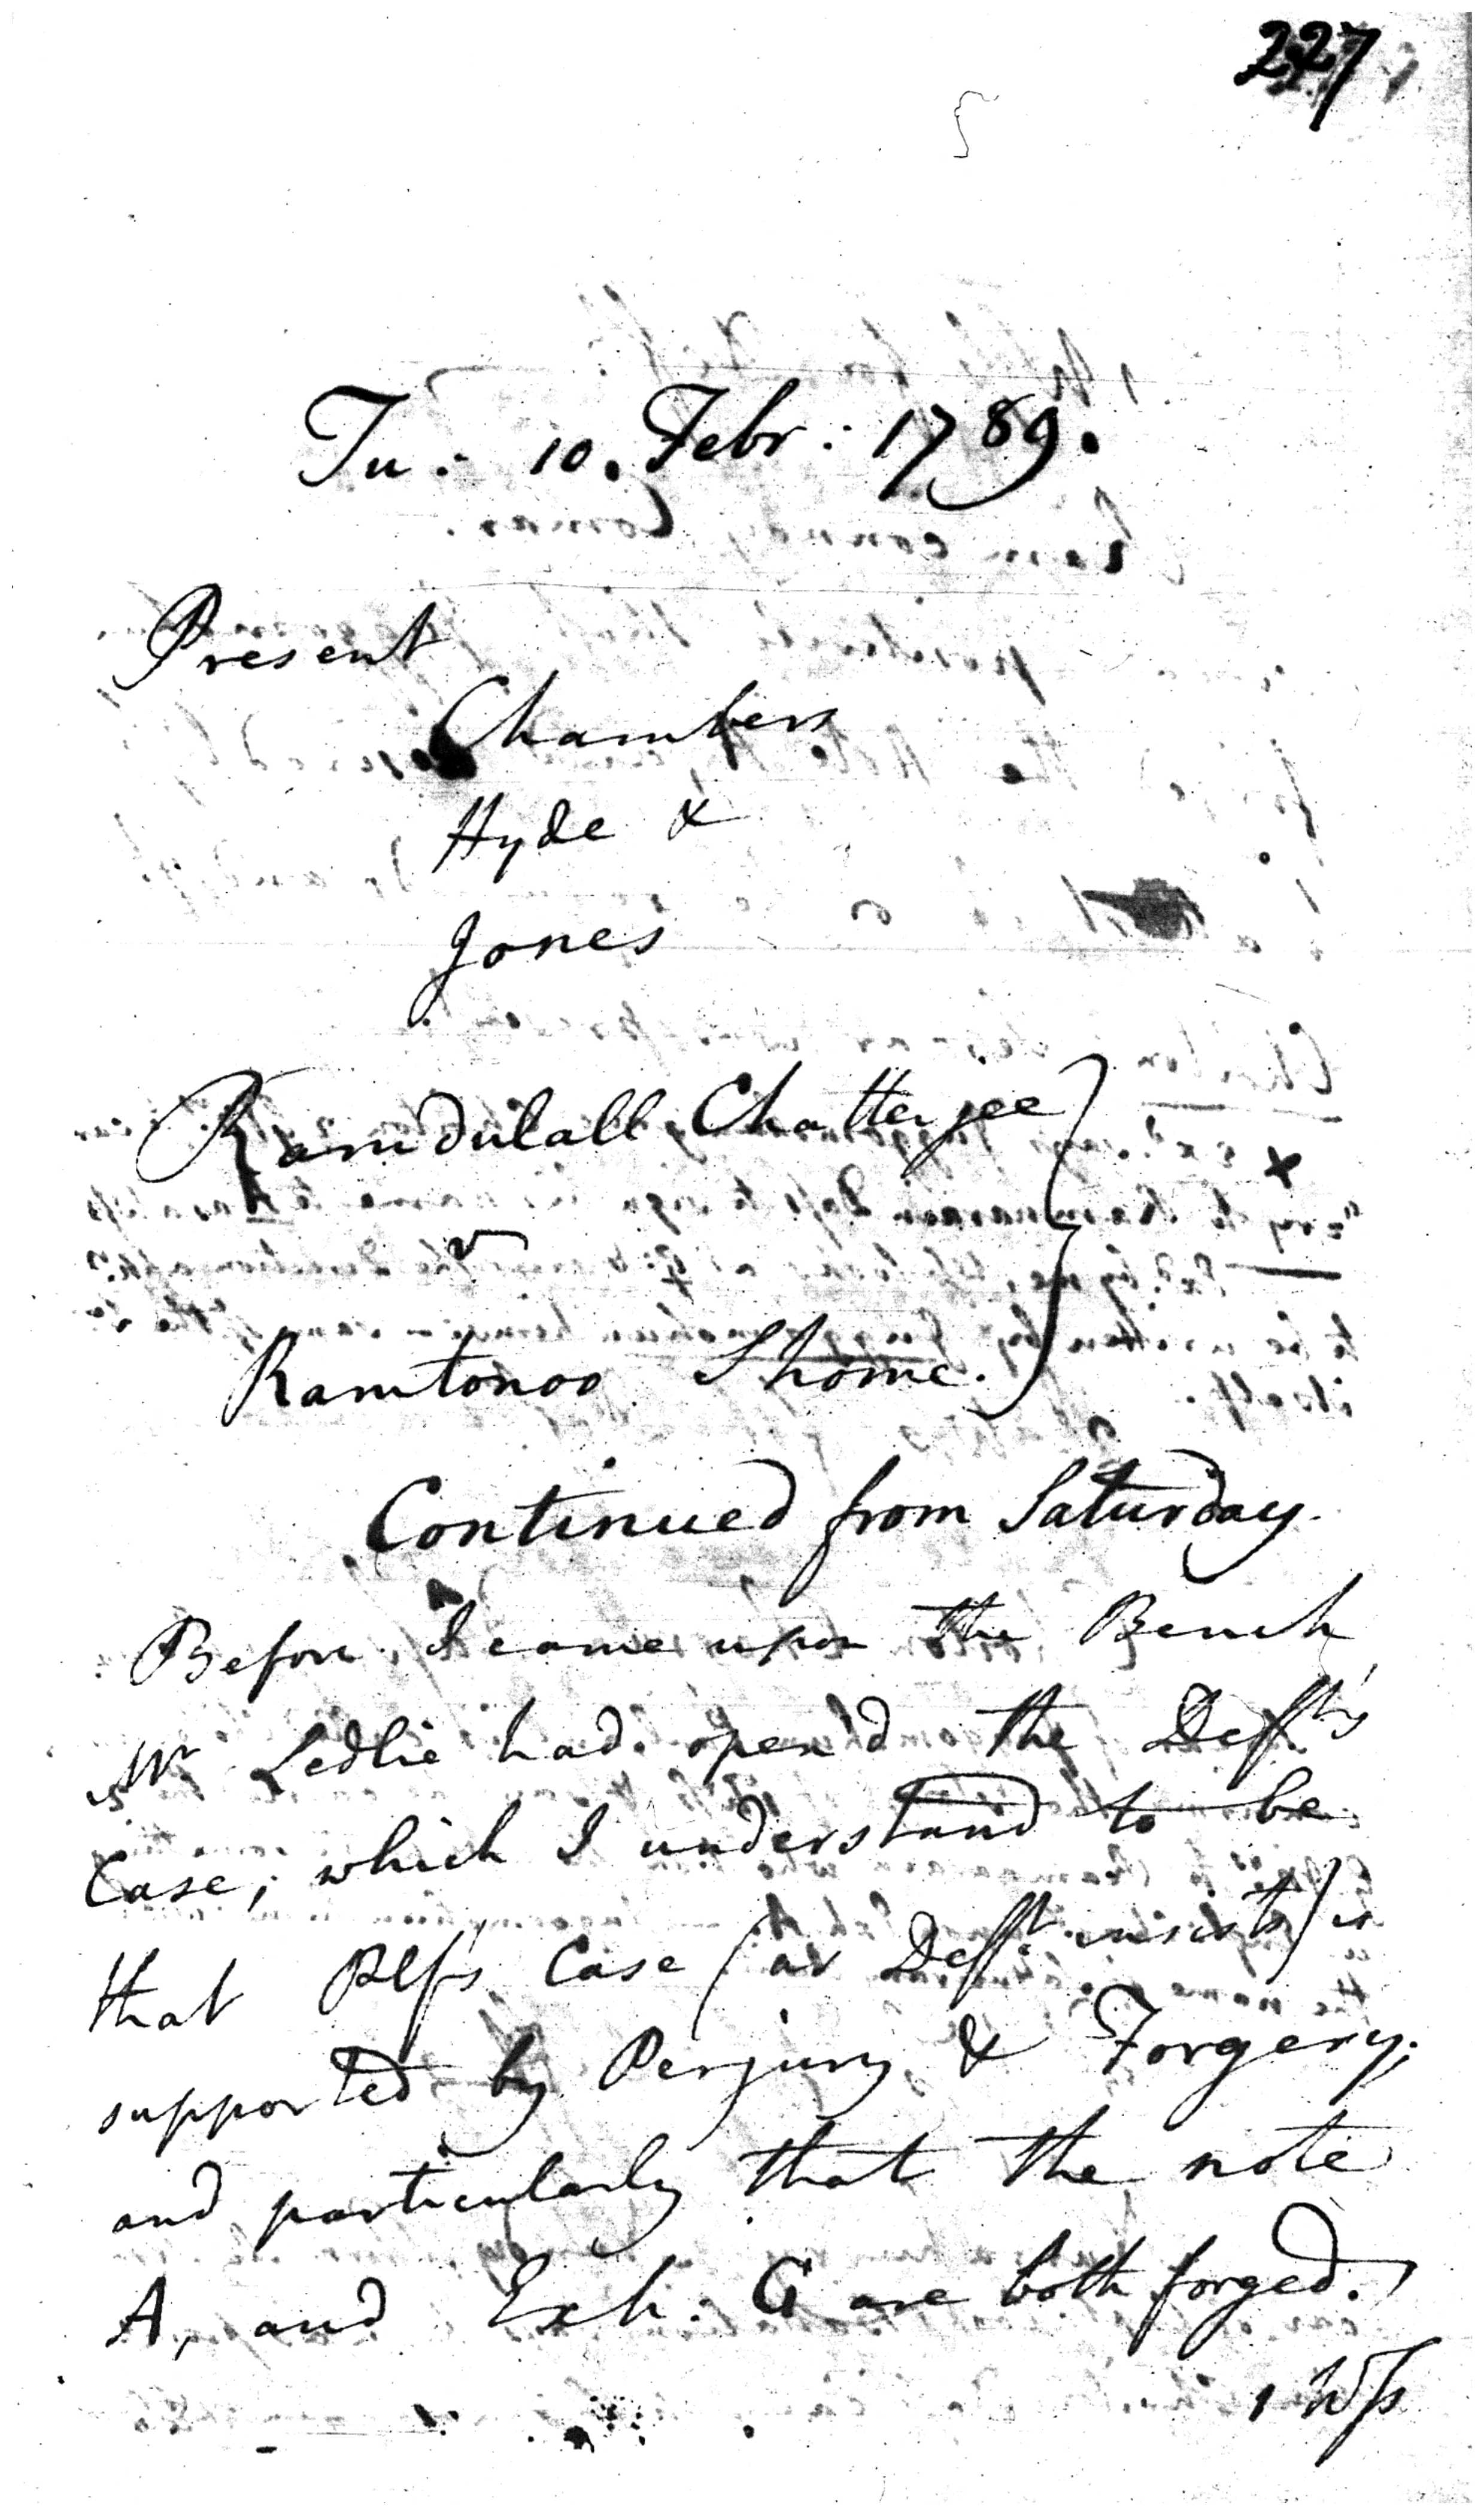 227
Tu: 10. Febr: 1789.
Present
Chambers
Hyde &
Jones
Ramdulall Chatterjee
v
Ramtonoo Shome.
Continued from Saturday.
Before I came upon the Bench
Mr Ledlie had open'd the Deft's
Case; which I understand to be
that Plf's Case (as Deft. insists) is
supported by Perjury & Forgery;
and particularly that the note
A, and Exh. G are both forged.
1 Wss